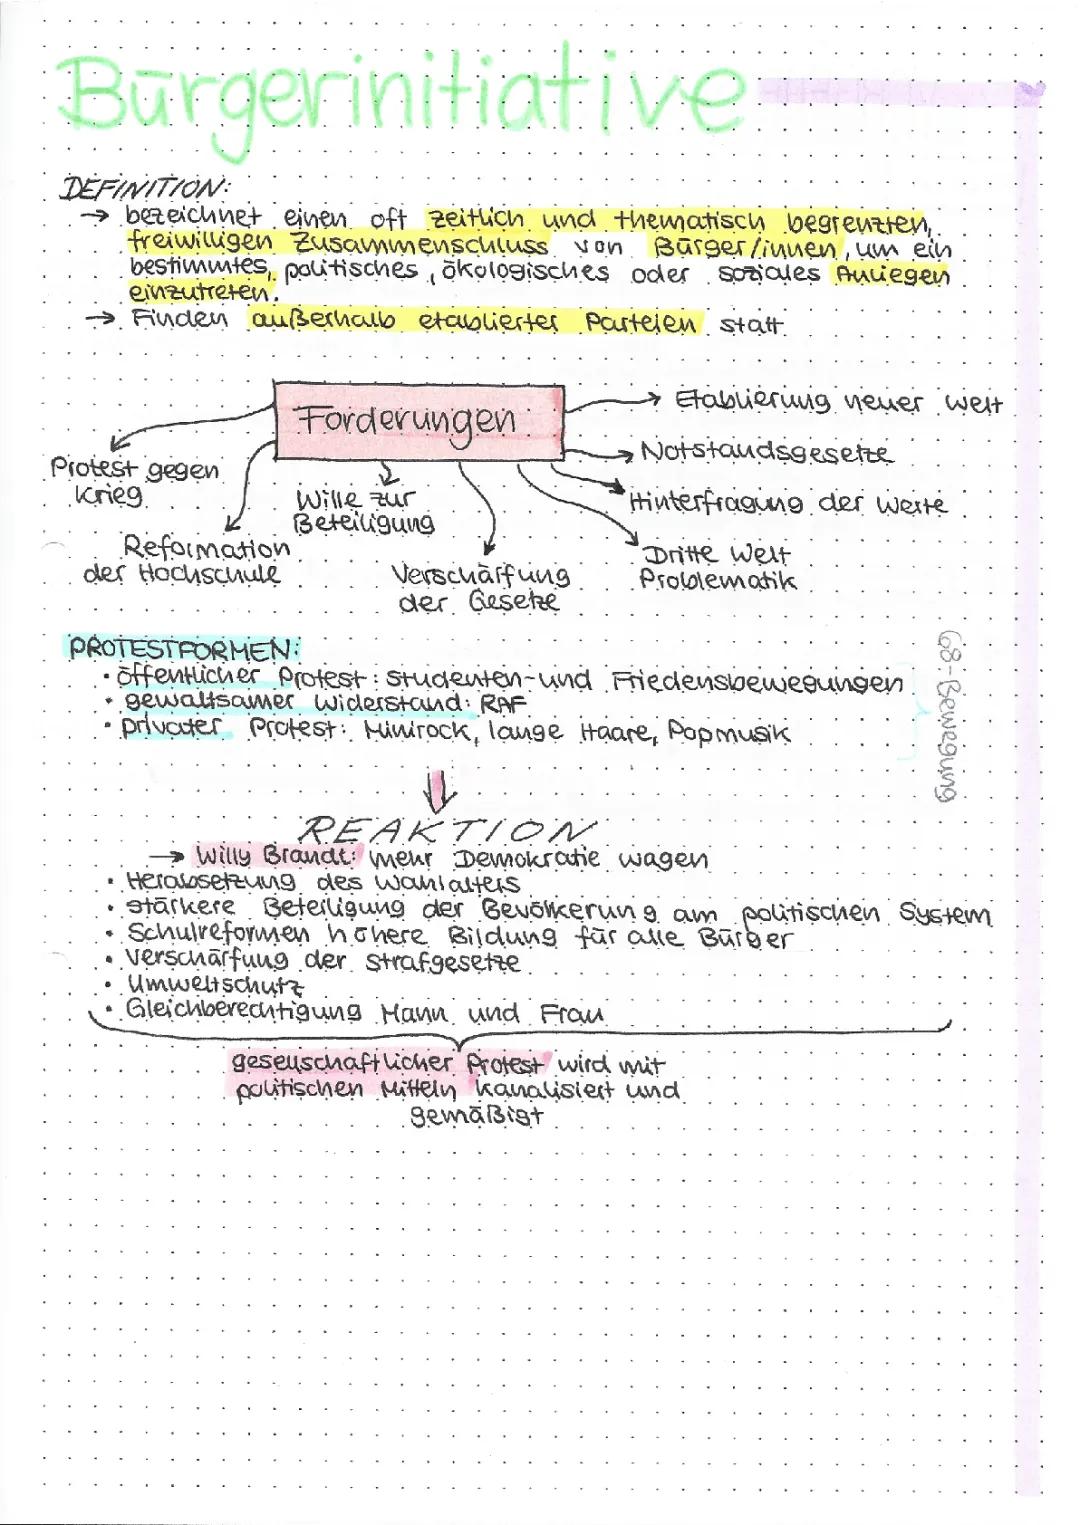 Bürgerinitiative
DEFINITION:
→ bezeichnet einen oft zeitlich und thematisch begrenzten,
freiwilligen Zusammenschluss von Bürger/innen, um ein
bestimmtes, politisches, ökologisches oder soziales Anliegen
einzutreten.
→ Finden außerhalb etablierter Parteien statt
Forderungen
Protest gegen
Krieg
Reformation
der Hochschule
Wille zur
Beteiligung
Verschärfung
der Gesetze
Etablierung neuer Welt
Notstandsgesetze
Hinterfragung der Werte
Dritte Welt
Problematik
PROTESTFORMEN:
• öffentlicher Protest: Studenten- und Friedensbewegungen
• gewaltsamer Widerstand: RAF
• privater Protest: Minirock, lange Haare, Popmusik
68-Bewegung
REAKTION
→ Willy Brandt: mehr Demokratie wagen
• Herabsetzung des Wahlalters
• stärkere Beteiligung der Bevölkerung am politischen System
• Schulreformen höhere Bildung für alle Bürger
• Verschärfung der Strafgesetze
• Umweltschutz
• Gleichberechtigung Mann und Frau
gesellschaftlicher Protest wird mit
politischen Mitteln kanalisiert und
gemäßigt